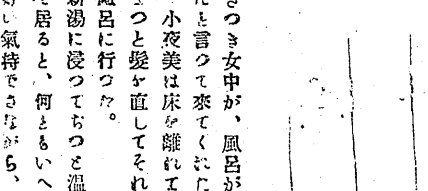 さつき女中が、風呂が
たと言つて來てくれた
小夜美は床を離れて
つと髮を直してそれ
風呂に行つた。
新湯に浸つてぢつと温
居ると、何ともいへ
好い氣持でさながら、